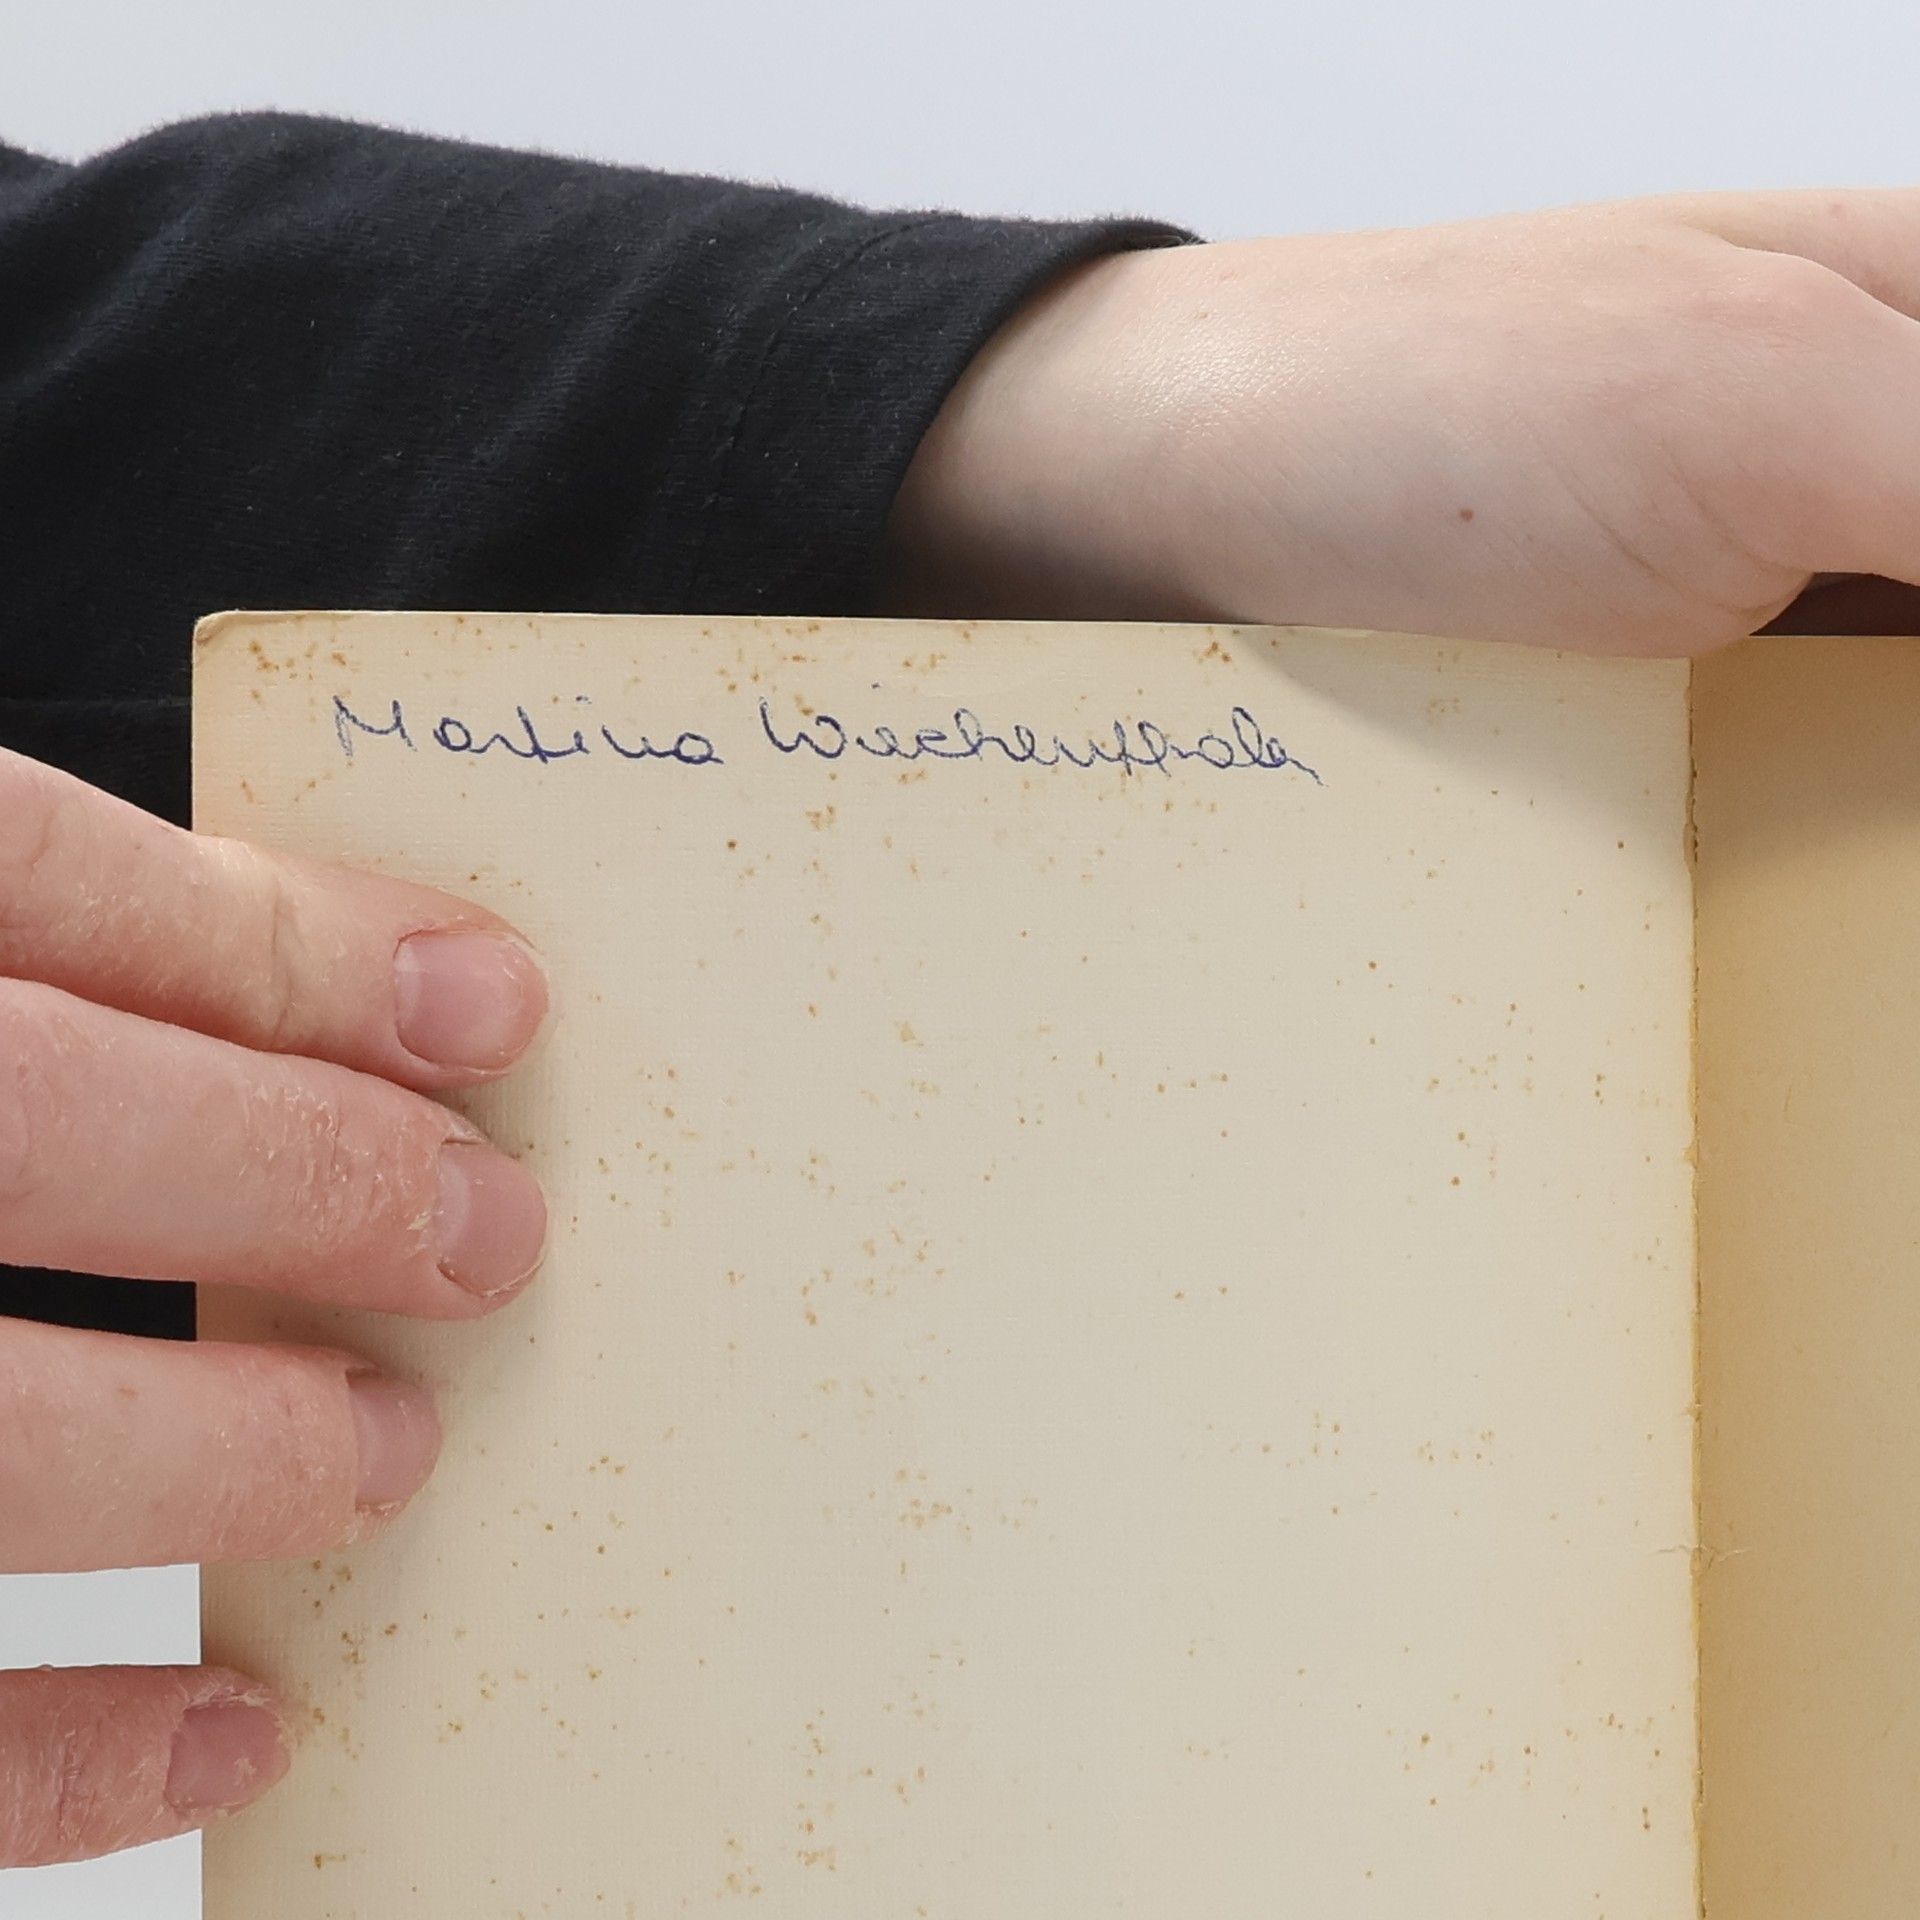 Martina Wiechenthaler